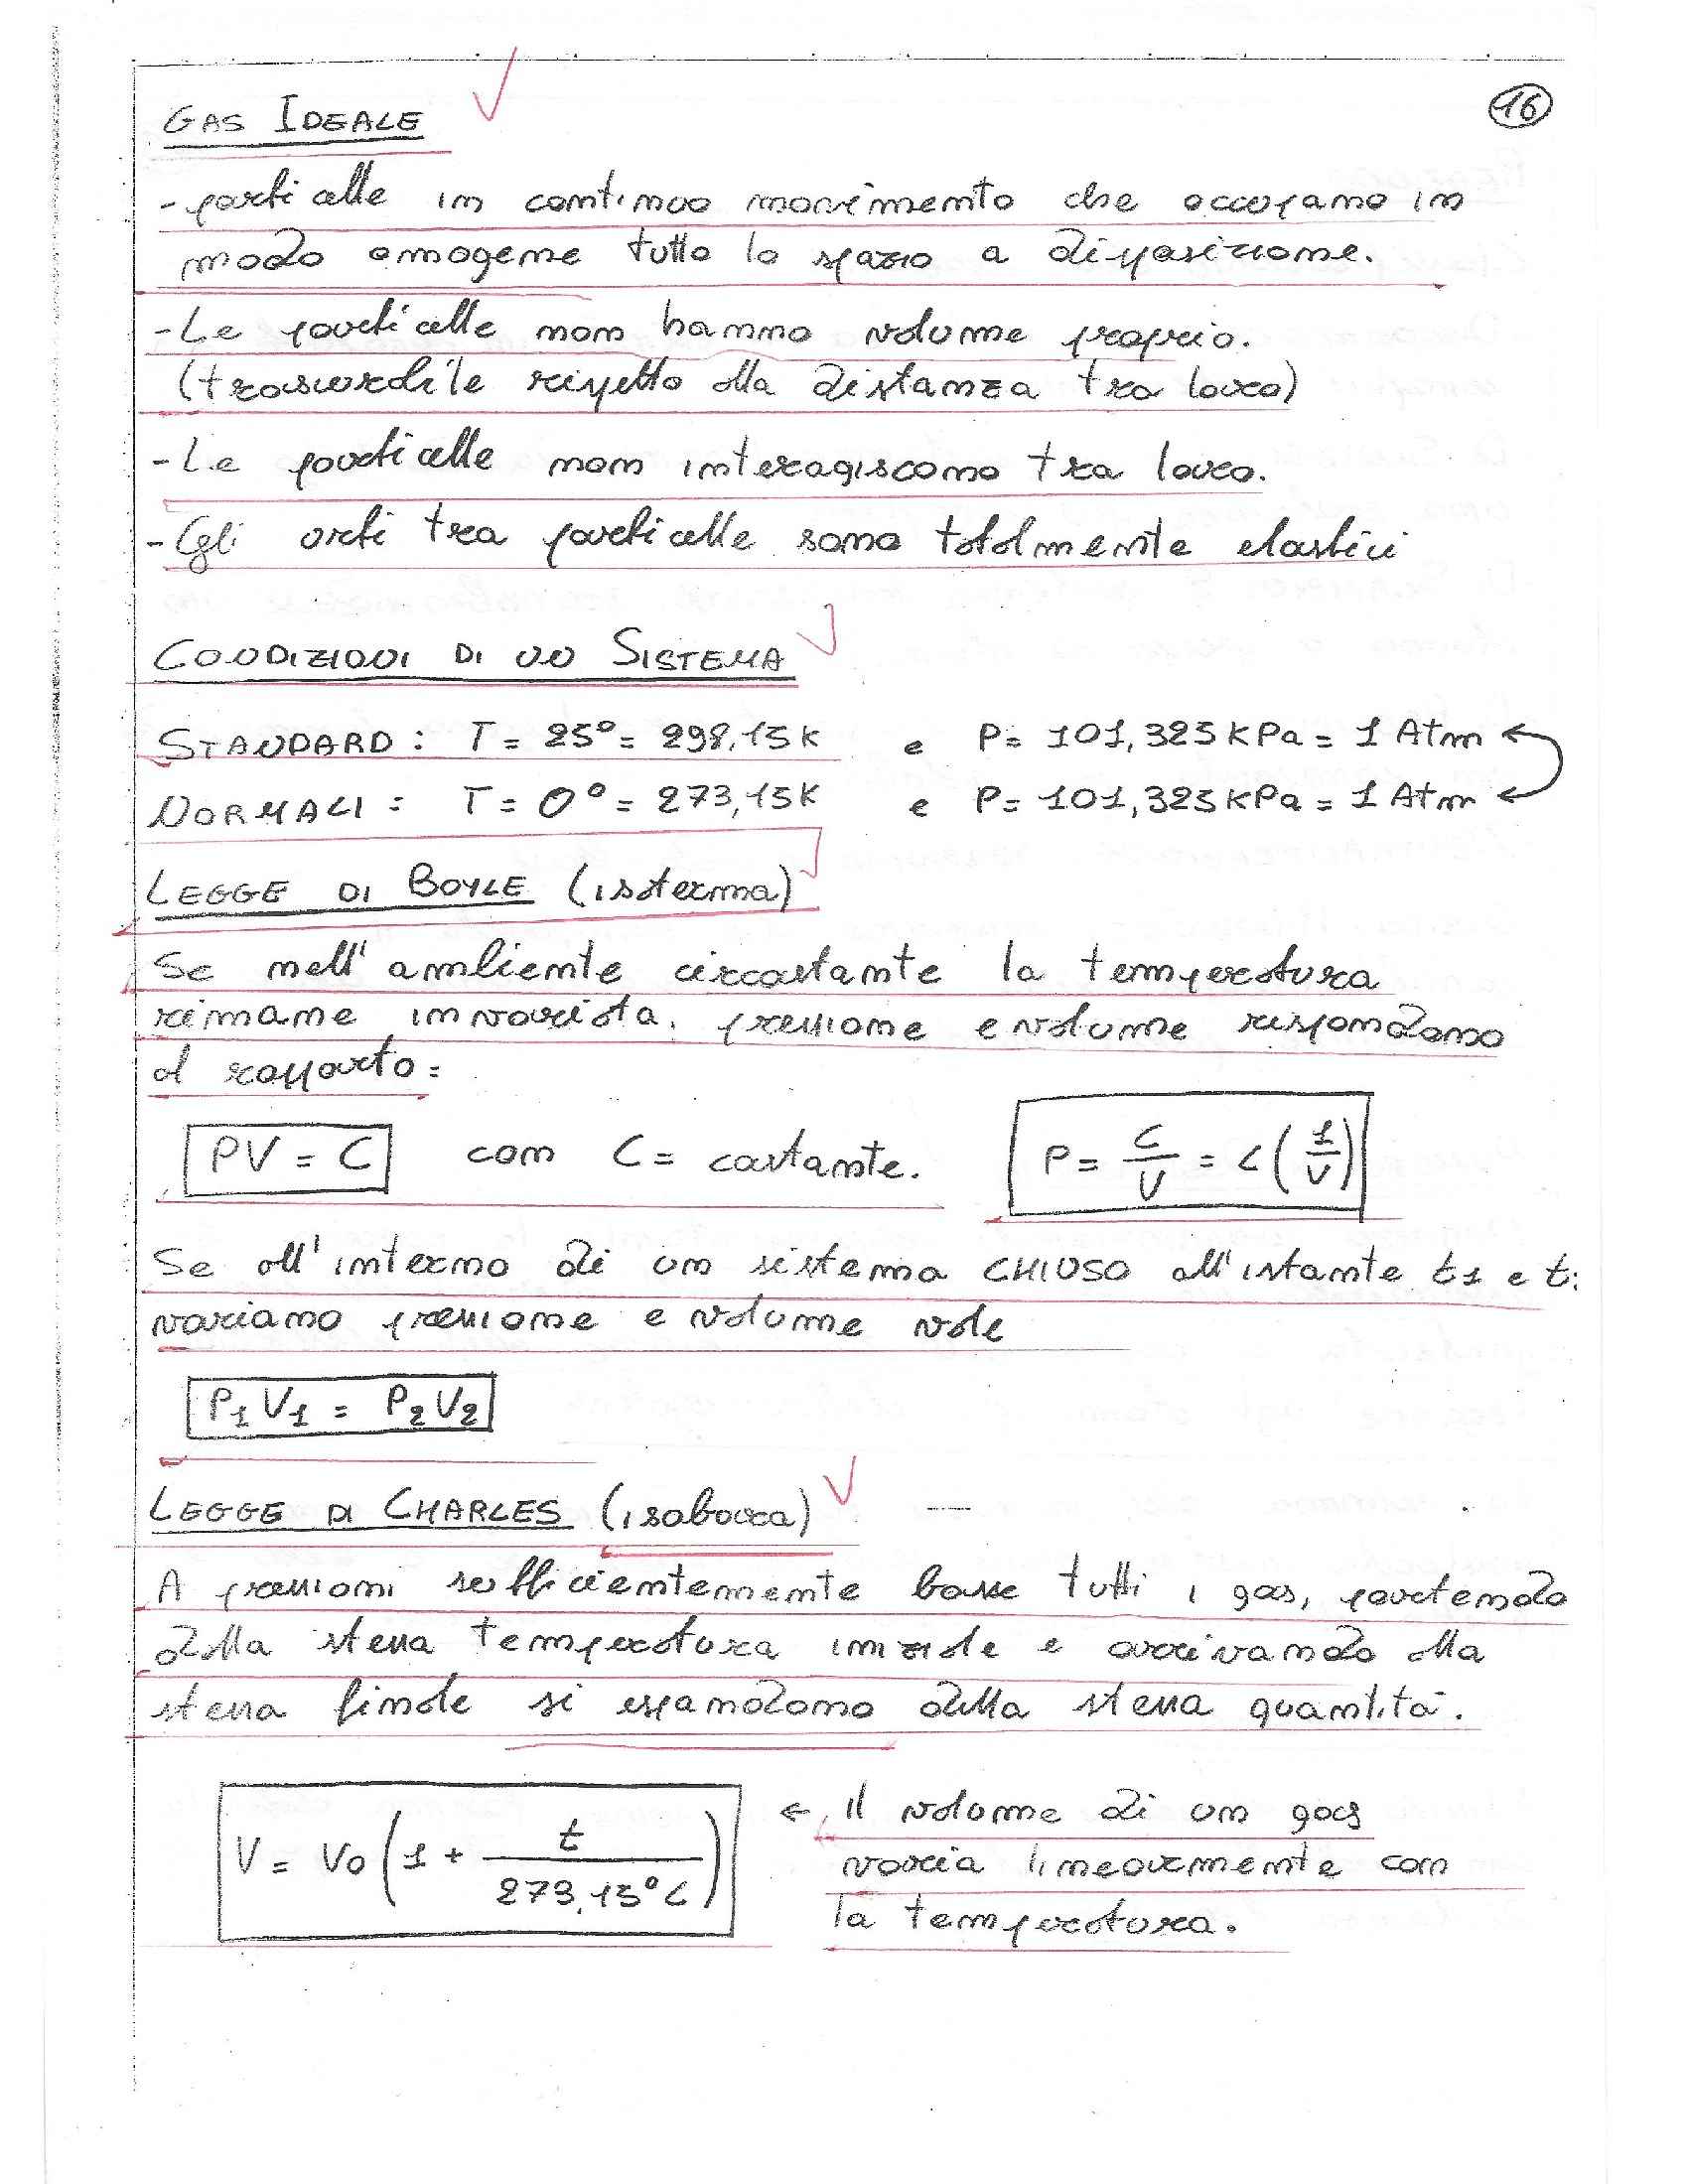 16
GAS IDEALE
- particelle in continuo movimento che occupano in
modo omogene tutto lo spazio a disposizione.
- Le particelle non hanno volume proprio.
(trascurabile rispetto alla distanza tra loro)
- Le particelle non interagiscono tra loro.
- Gli urti tra particelle sono totalmente elastici
CONDIZIONI DI UN SISTEMA
STANDARD: T = 25° = 298,15K e P = 101,325 KPa = 1 Atm
NORMALI: T = 0° = 273,15K e P = 101,325 KPa = 1 Atm
LEGGE DI BOYLE (isoterma)
Se nell'ambiente circostante la temperatura
rimane invariata, pressione e volume rispondono
al rapporto:
PV = C con C = costante. P = C/V = C (1/V)
Se all'interno di un sistema CHIUSO all'istante t1 e t
variamo pressione e volume vale
P1V1 = P2V2
LEGGE DI CHARLES (isobara)
A pressioni sufficientemente basse tutti i gas, partendo
dalla stessa temperatura iniziale e arrivando alla
stessa finale si espandono della stessa quantità.
V = V0 (1 + t/273,15°C) ← Il volume di un gas
varia linearmente con
la temperatura.